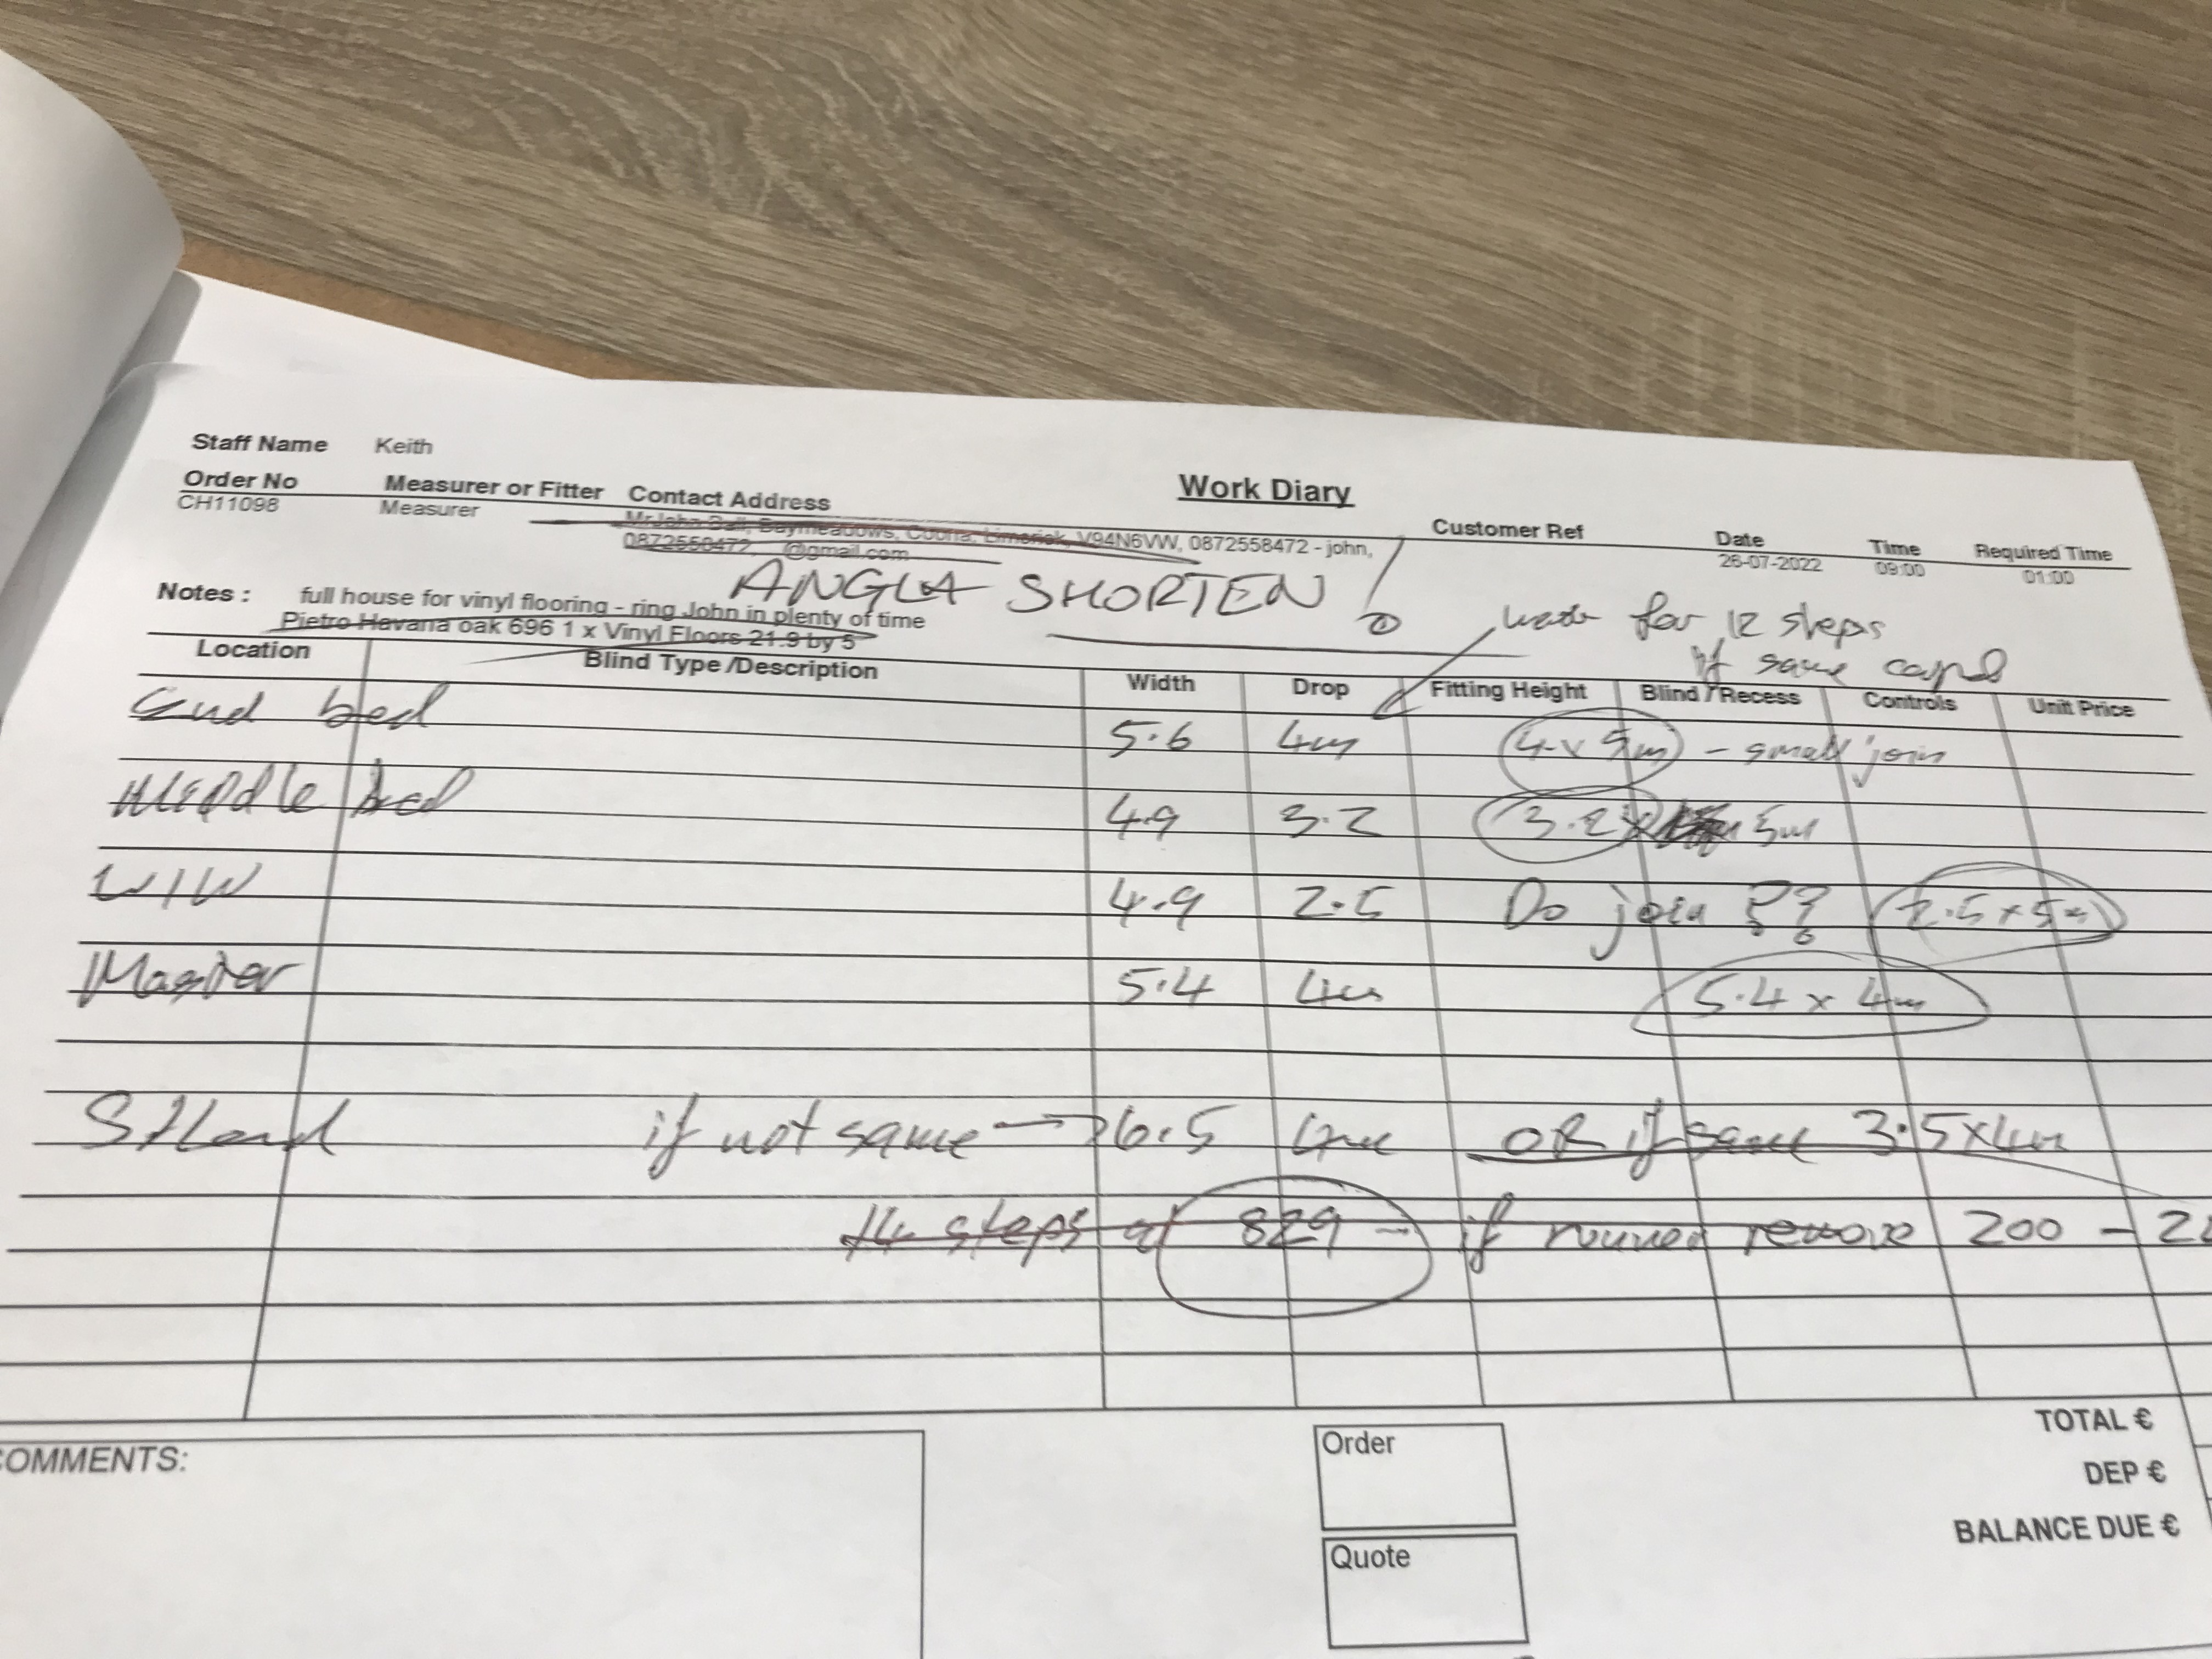 Staff Name Keith
Work Diary
Order No Measurer or Fitter Contact Address Customer Ref Date Time Required Time
CH11098 Measurer Mr John Baymeadows, Coona, Limerick, V94N6VW, 0872558472 - john, 26-07-2022 09:00 01:00
0872558472, @gmail.com
ANGLA SHORTEN
Notes : full house for vinyl flooring - ring John in plenty of time
Pietro Havana oak 696 1 x Vinyl Floors 21.9 by 5
for 12 steps
if same
Location Blind Type /Description Width Drop Fitting Height Blind / Recess Controls Unit Price
bed 5.6 4m 4 x 5m - small join
Middle bed 4.9 3.2 3.2 x 5m
WIW 4.9 2.5 Do join ?? 2.5 x 5m
Master 5.4 4m 5.4 x 4m
S/Land if not same → 6.5 4m OR if same 3.5 x 4m
14 steps at 829 - if runner remove 200 -
COMMENTS:
Order
Quote
TOTAL €
DEP €
BALANCE DUE €